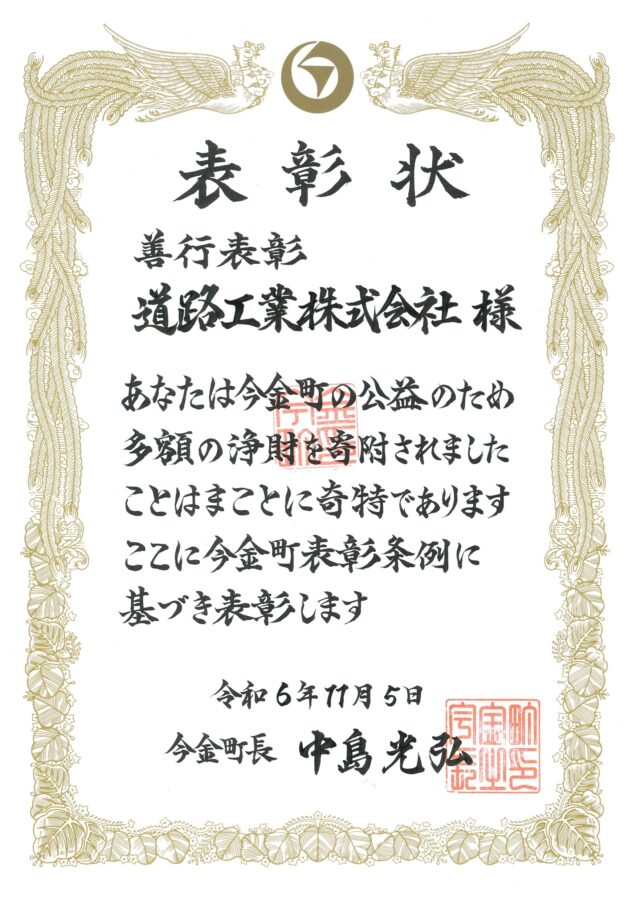 表彰状
善行表彰
道路工業株式会社 様
あなたは今金町の公益のため
多額の浄財を寄附されました
ことはまことに奇特であります
ここに今金町表彰条例に
基づき表彰します
令和6年11月5日
今金町長 中島光弘